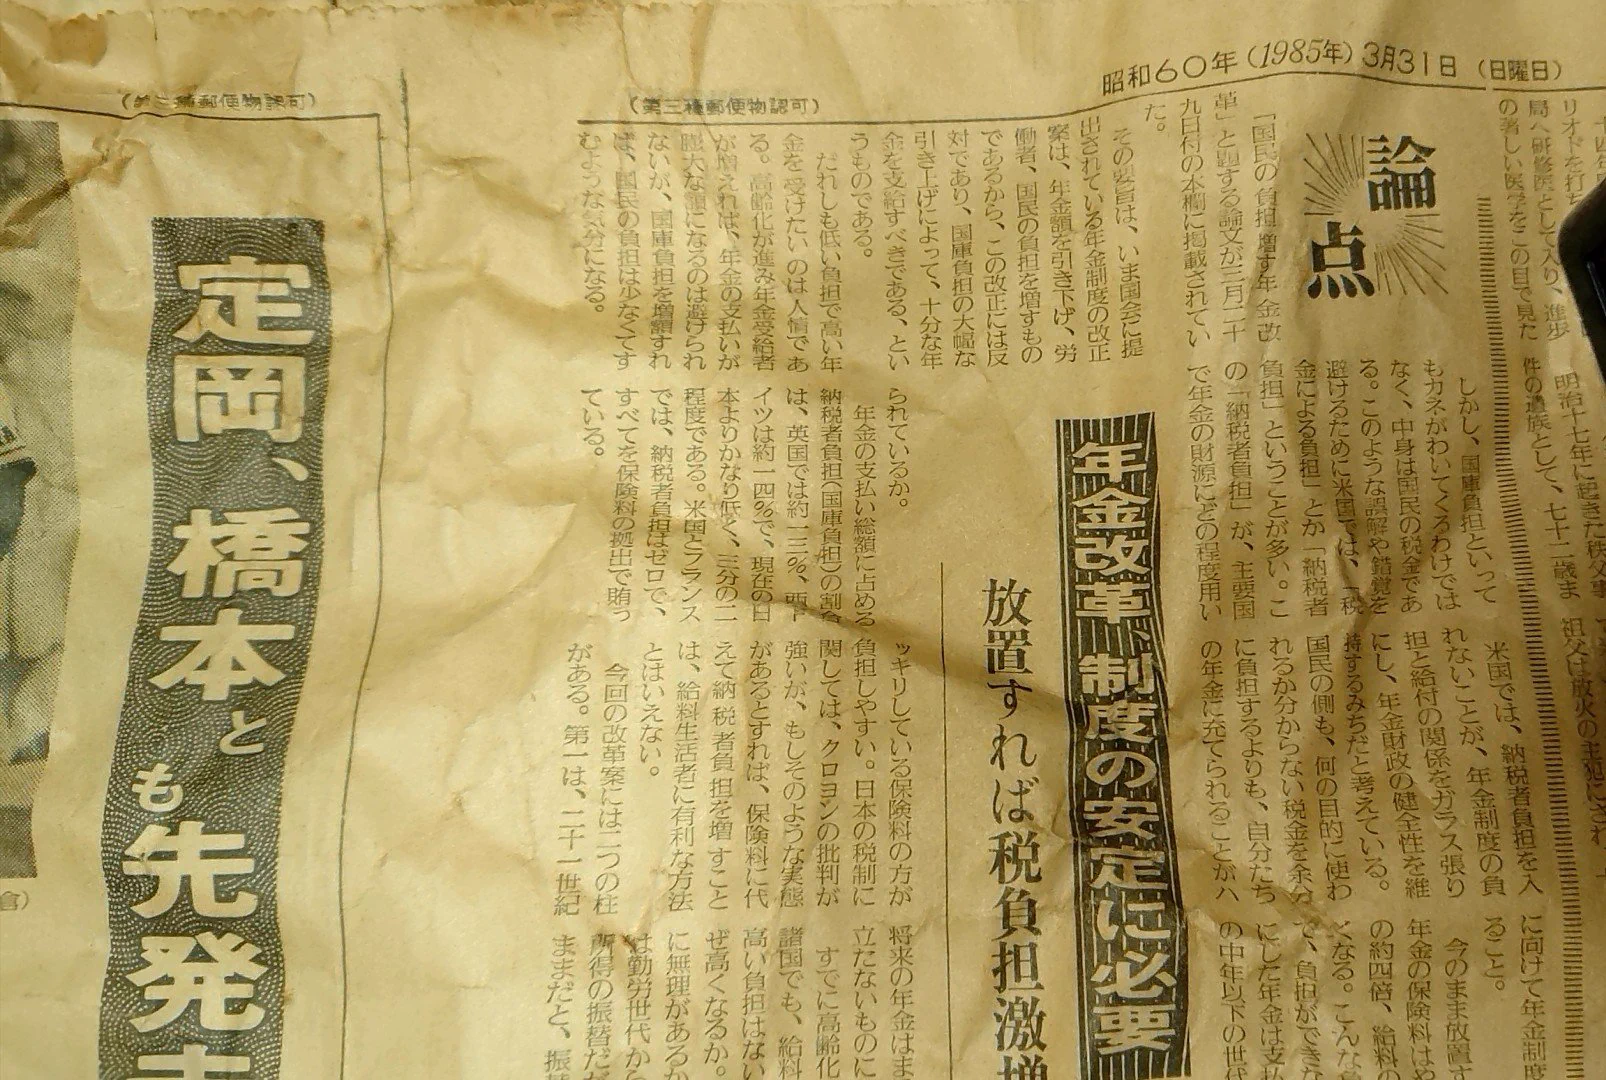 昭和60年(1985年)3月31日 (日曜日)
(第三種郵便物認可)
(第三種郵便物認可)
論点
年金改革、制度の安定に必要
放置すれば税負担激増
「国民の負担増す年金改
革」と題する論文が三月二十
九日付の本欄に掲載されてい
た。
その要旨は、いま国会に提
出されている年金制度の改正
案は、年金額を引き下げ、労
働者、国民の負担を増すもの
であるから、この改正には反
対であり、国庫負担の大幅な
引き上げによって、十分な年
金を支給すべきである、とい
うものである。
だれしも低い負担で高い年
金を受けたいのは人情であ
る。高齢化が進み年金受給者
が増えれば、年金の支払いが
膨大な額になるのは避けられ
ないが、国庫負担を増額すれ
ば、国民の負担は少なくてす
むような気分になる。
しかし、国庫負担といって
もカネがわいてくるわけでは
なく、中身は国民の税金であ
る。このような誤解や錯覚を
避けるために米国では、「税
金による負担」とか「納税者
負担」ということが多い。こ
の「納税者負担」が、主要国
で年金の財源にどの程度用い
られているか。
年金の支払い総額に占める
納税者負担(国庫負担)の割合
は、英国では約一三%、西ド
イツは約一四%で、現在の日
本よりかなり低く、三分の二
程度である。米国とフランス
では、納税者負担はゼロで、
すべてを保険料の拠出で賄っ
ている。
米国では、納税者負担を入
れないことが、年金制度の負
担と給付の関係をガラス張り
にし、年金財政の健全性を維
持するみちだと考えている。
国民の側も、何の目的に使わ
れるか分からない税金を余分
に負担するよりも、自分たち
の年金に充てられることがハ
ッキリしている保険料の方が
負担しやすい。日本の税制に
関しては、クロヨンの批判が
強いが、もしそのような実態
があるとすれば、保険料に代
えて納税者負担を増すこと
は、給料生活者に有利な方法
とはいえない。
今回の改革案には二つの柱
がある。第一は、二十一世紀
に向けて年金制度
ること。
今のまま放置す
年金の保険料はや
の約四倍、給料の
くなる。こんな
で、負担ができな
にした年金は支払
の中年以下の世代
将来の年金はま
立たないものに
すでに高齢化
諸国でも、給料
高い負担はない
ぜ高くなるか。
に無理があるか
は勤労世代から
所得の振替だが
ままだと、振替
リオドを打ち
局へ研修医として入り、進歩
の著しい医学をこの目で見た
明治十七年に起きた秩父事
件の遺族として、七十二歳ま
祖父は放火の主犯にされ
定岡、橋本とも先発